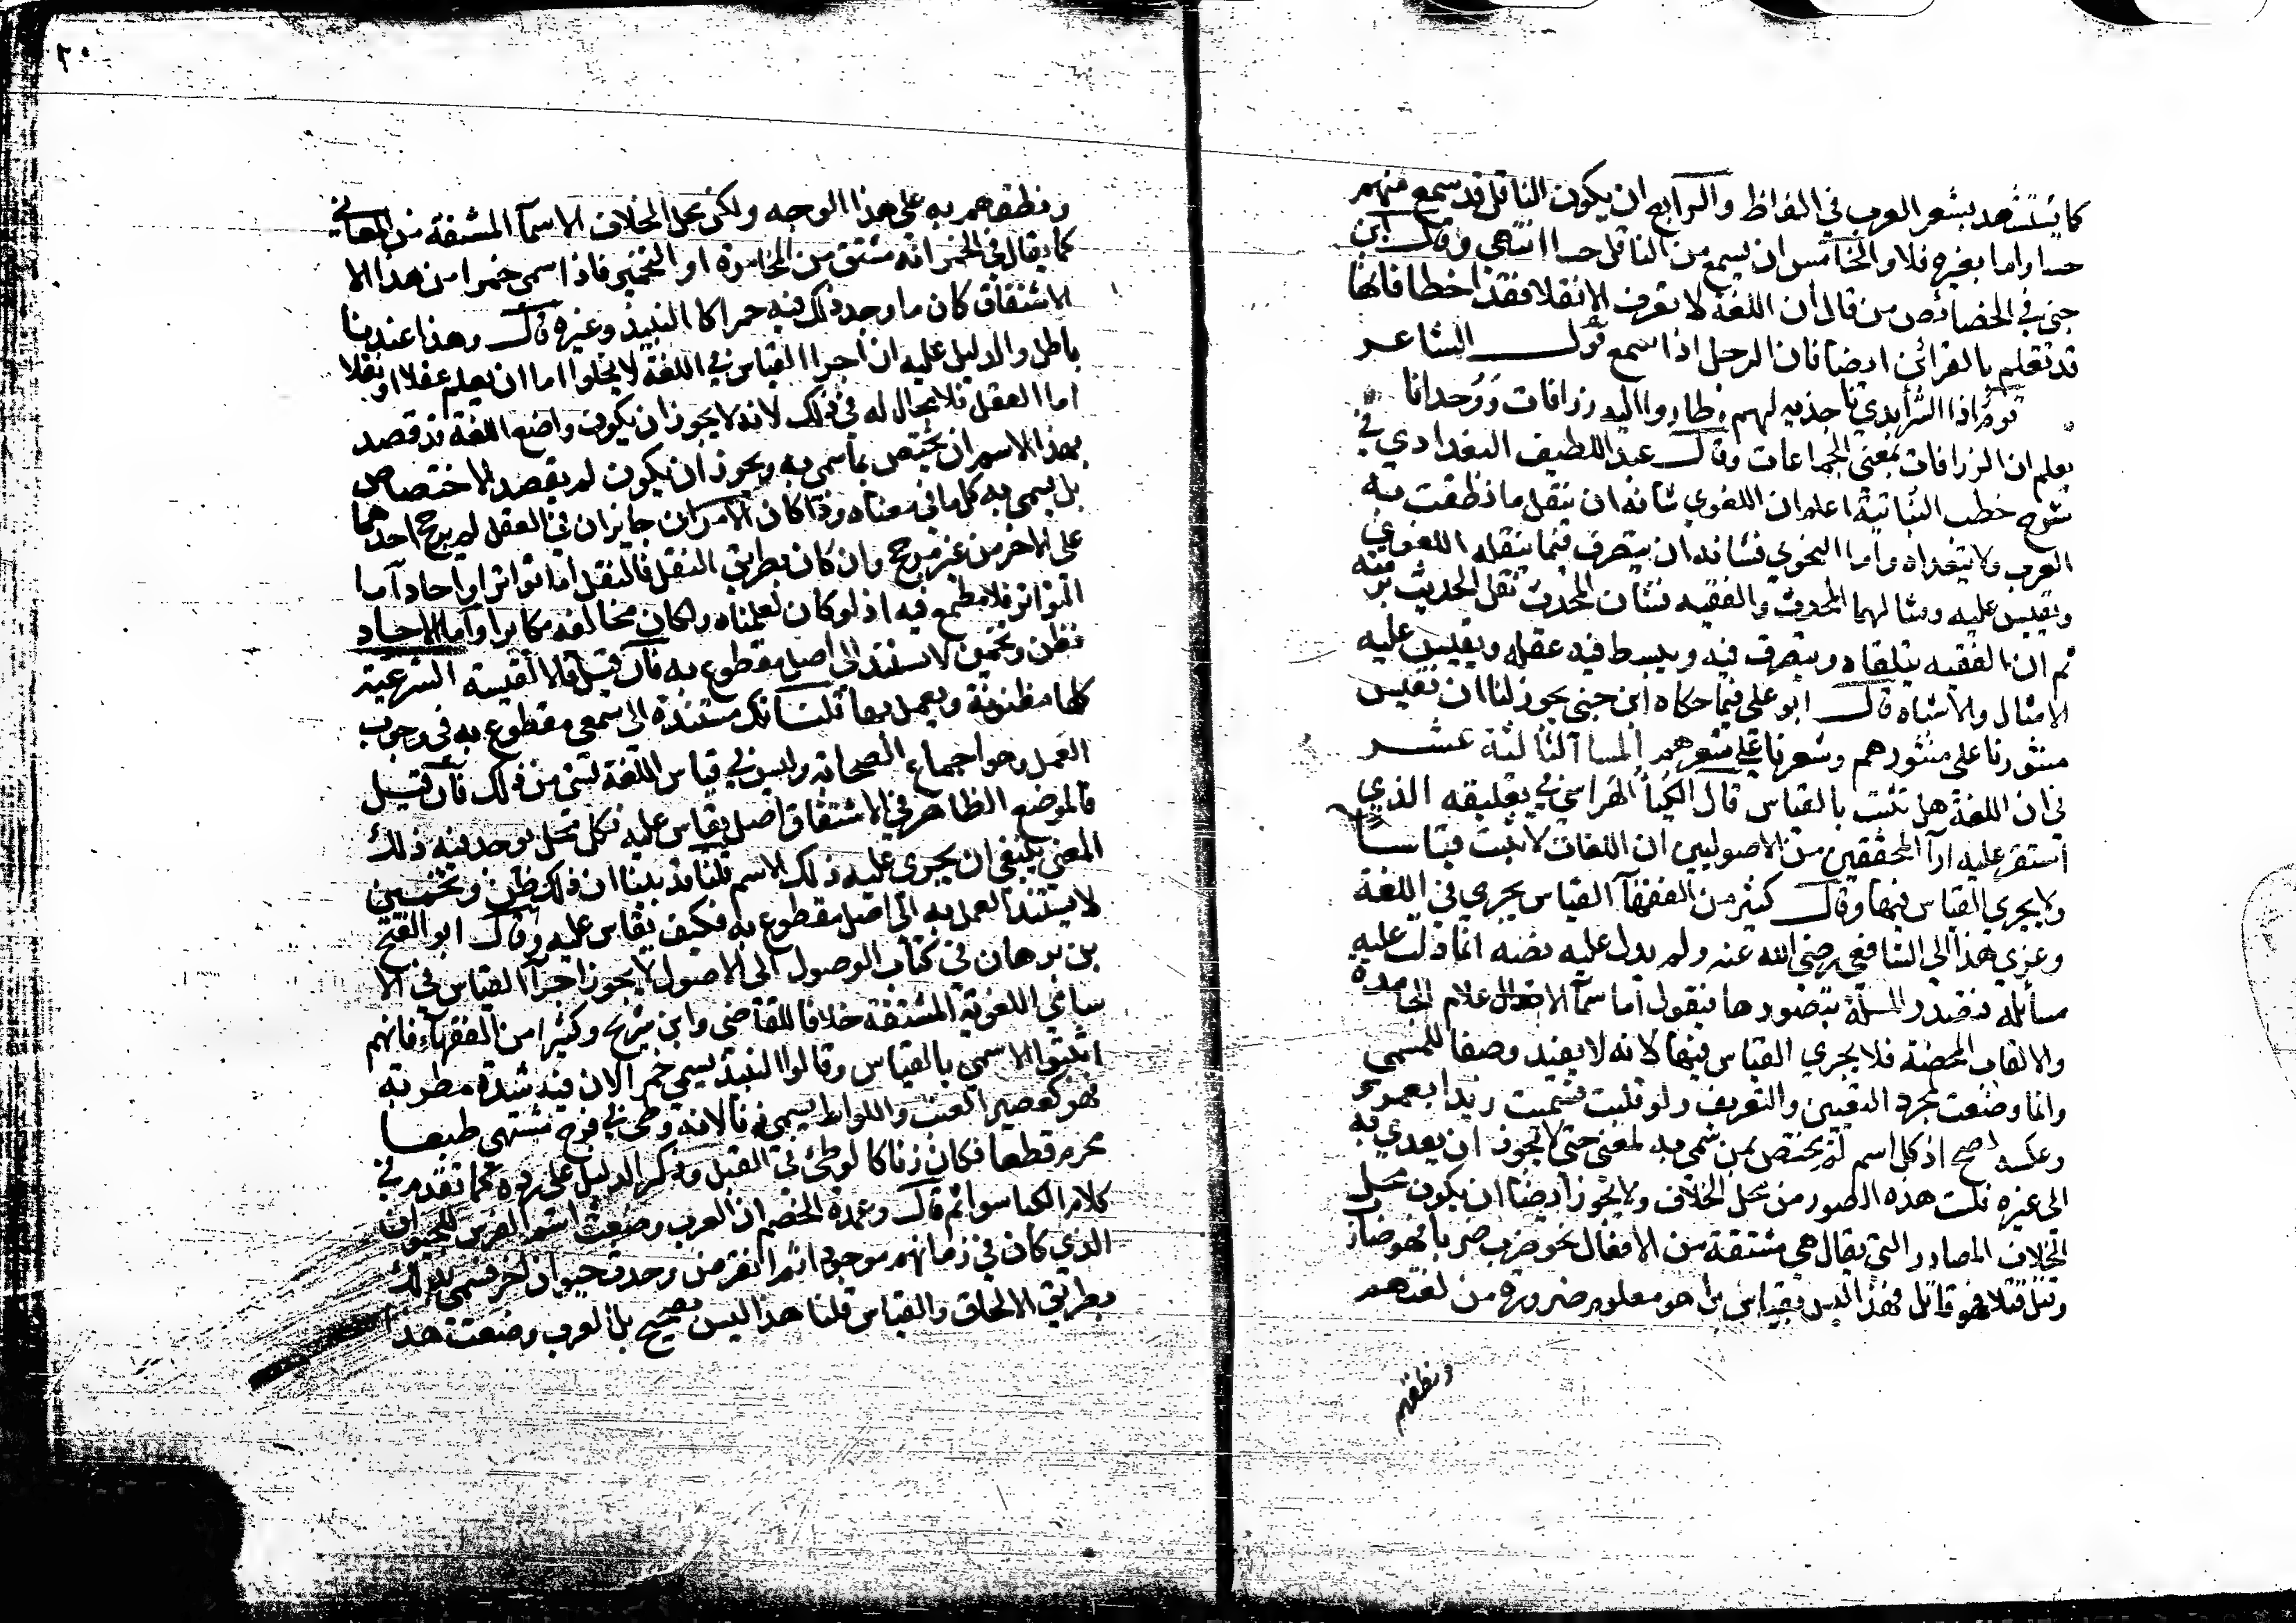 كما يستشهد بشعر العرب في الفاظ والرابع ان يكون الناقل قد سمع منهم
حسا واما بغيره فلا والخامس ان يسمع من الناقل حسا انتهى وقال ابن
جني في الخصائص من قال ان اللغة لا تعرف الا نقلا فقد اخطا فانها
قد تعلم بالقرائن ايضا فان الرجل اذا سمع قول الشاعر
قوم اذا الشر ابدي ناجذيه لهم طاروا اليه زرافات ووحدانا
يعلم ان الزرافات بمعنى الجماعات وقال عبد اللطيف البغدادي في
شرح خطب النباتية اعلم ان اللغوي شانه ان ينقل ما نطقت به
العرب ولا يتعداه واما النحوي فشانه ان يتصرف فيما ينقله اللغوي
ويقيس عليه ومثالهما المحدث والفقيه فشان المحدث نقل الحديث برمته
ثم ان الفقيه يتلقاه ويتصرف فيه ويبسط فيه عقله ويقيس عليه
الامثال والاشباه قال ابو علي فيما حكاه ابن جني يجوز لنا ان نقيس
منثورنا على منثورهم وشعرنا على شعرهم المسا آلثالثة عشر
في ان اللغة هل تثبت بالقياس قال الكيا الهراسي في تعليقه الذي
استقر عليه ارآ المحققين من الاصوليين ان اللغات لا تثبت قياسا
ولا يجري القياس فيها وقال كثير من الفقهآ القياس يجري في اللغة
وعزي هذا الى الشافعي رضي الله عنه ولم يدل عليه نصه انما دلت عليه
مسائله فنصدر المسلة بتصورها فنقول اما سمآ الاعلام الجامدة
والالقاب المحضة فلا يجري القياس فيها لانه لا يفيد وصفا للمسمى
وانما وضعت لمجرد التعيين والتعريف ولو قلبت فسميت زيدا بعمرو
وعكسه صح اذ كل اسم لم يختص بمن سمى به لمعنى حتى لا يجوز ان يعدي به
الى غيره قلت هذه الصور من محل الخلاف ولا يجوز ايضا ان يكون محل
الخلاف المصادر التي يقال هي مشتقة من الافعال نحو ضرب ضربا فهو ضارب
وقتل قتلا فهو قاتل فهذا ليس بقياس بل هو معلوم ضرورة من لغتهم
ونطقهم
٢٠
ونطقهم به على هذا الوجه ولكن محل الخلاف الاسمآ المشتقة من المعاني
كما يقال في الخمر انه مشتق من المخامرة او التخمير فاذا سمى خمرا من هذا الا
الاشتقاق كان ما وجد ذلك فيه خمرا كالنبيذ وغيره قال وهذا عندنا
باطل والدليل عليه ان اجرا القياس في اللغة لا يخلوا اما ان يعلم عقلا او نقلا
اما العقل فلا مجال له في ذلك لانه لا يجوز ان يكون واضع اللغة قد قصد
بهذا الاسم ان يختص بما سمى به ويجوز ان يكون لم يقصد الاختصاص
بل يسمى به كل ما في معناه وذا كان الامران جايزان في العقل لم يرجح احدهما
على الاخر من غير مرجح وان كان بطريق النقل فالنقل اما تواترا او احاد آما
التواتر فلا مطمع فيه اذ لو كان لعلمناه ولكان مخالفه مكابرا وآما الاحاد
فظن وتخمين لا يستند الى اصل مقطوع به فآن قيل فالاقيسة الشرعية
كلها مظنونة ويعمل بها قلنا تلك مستندة الى سمعي مقطوع به في وجوب
العمل وهو اجماع الصحابة وليس في قياس اللغة شئ من ذلك فآن قيل
فالموضع الظاهر في الاشتقاق اصل يقاس عليه فكل محل يوجد فيه ذلك
المعنى ينبغي ان يجري عليه ذلك الاسم قلنا قد بينا ان ذلك ظن وتخمين
لا يستند العمل به الى اصل مقطوع به فكيف يقاس عليه وقال ابو الفتح
بن برهان في كتاب الوصول الى الاصول لا يجوز اجرآ القياس في الا
سامي اللغوية المشتقة خلافا للقاضي وابن سريج وكثيرا من الفقهاء فانهم
اثبتوا الاسمي بالقياس وقالوا النبيذ يسمى خمرا لان فيه شدة مطربة
فهو كعصير العنب واللواط يسمى زنا لانه وطئ في فرج مشتهى طبعا
محرم قطعا فكان زنا كالوطئ في القبل وذكر الدليل على رده كما تقدم في
كلام الكيا سوا ثم قال وعمدة الخصم ان العرب وضعت اسم الفرس للحيوان
الذي كان في زمانهم موجودا ثم انقرض وحدث حيوان اخر فسمى بذلك
بطريق الالحاق والقياس قلنا هذا ليس بصحيح بل العرب وضعت هذا